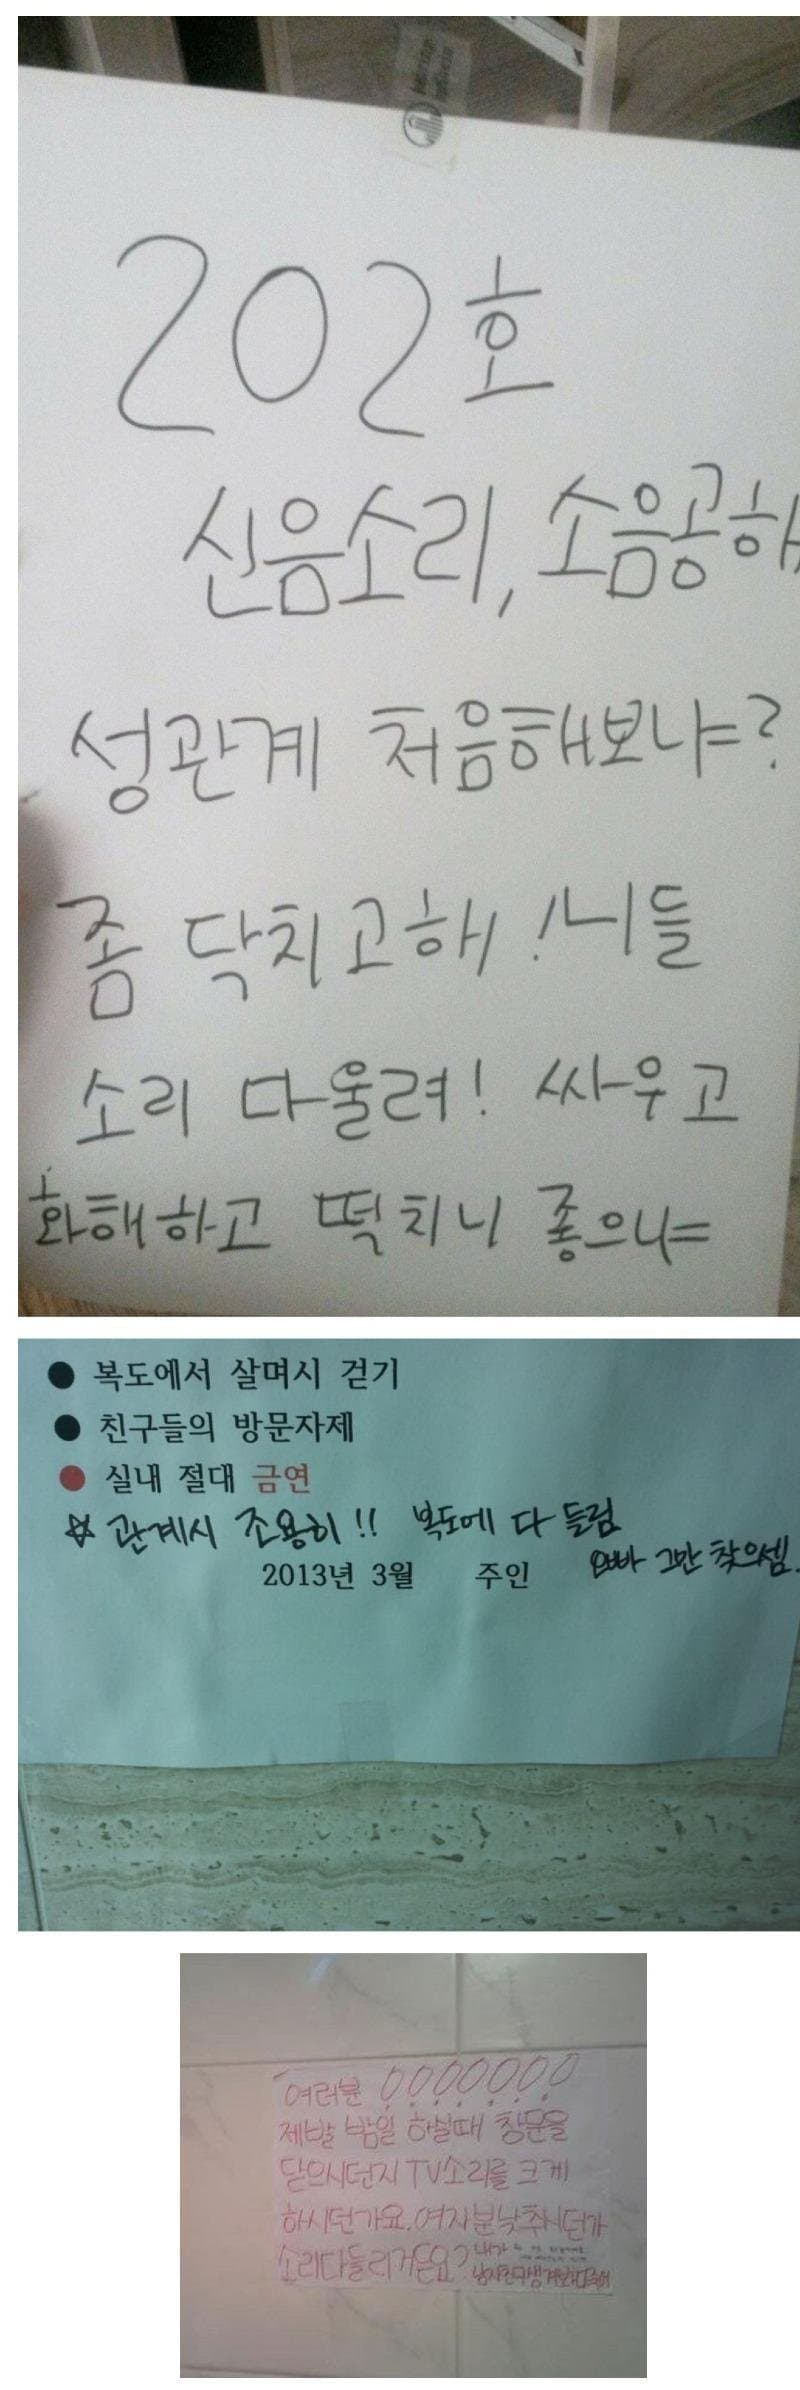 202호
신음소리, 소음공해
성관계 처음해보냐=?
좀 닥치고해! 니들
소리 다울려! 싸우고
화해하고 떡치니 좋으냐=
● 복도에서 살며시 걷기
● 친구들의 방문자제
● 실내 절대 금연
☆ 관계시 조용히!! 복도에 다 들림
2013년 3월 주인 오빠 그만 찾으셈.
여러분 !!!!!!!
제발 밤일 하실때 창문을
닫으시던지 TV소리를 크게
하시던가요. 여자분낮추시던가
소리다들리거든요? 내가